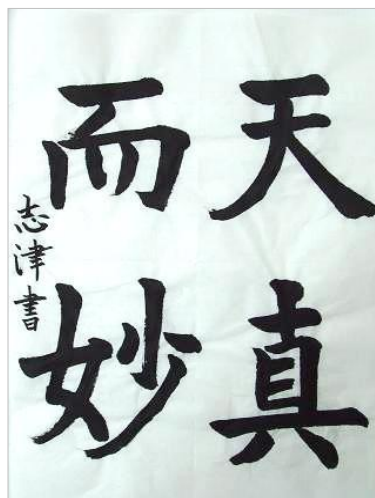 天真
而妙
志津書